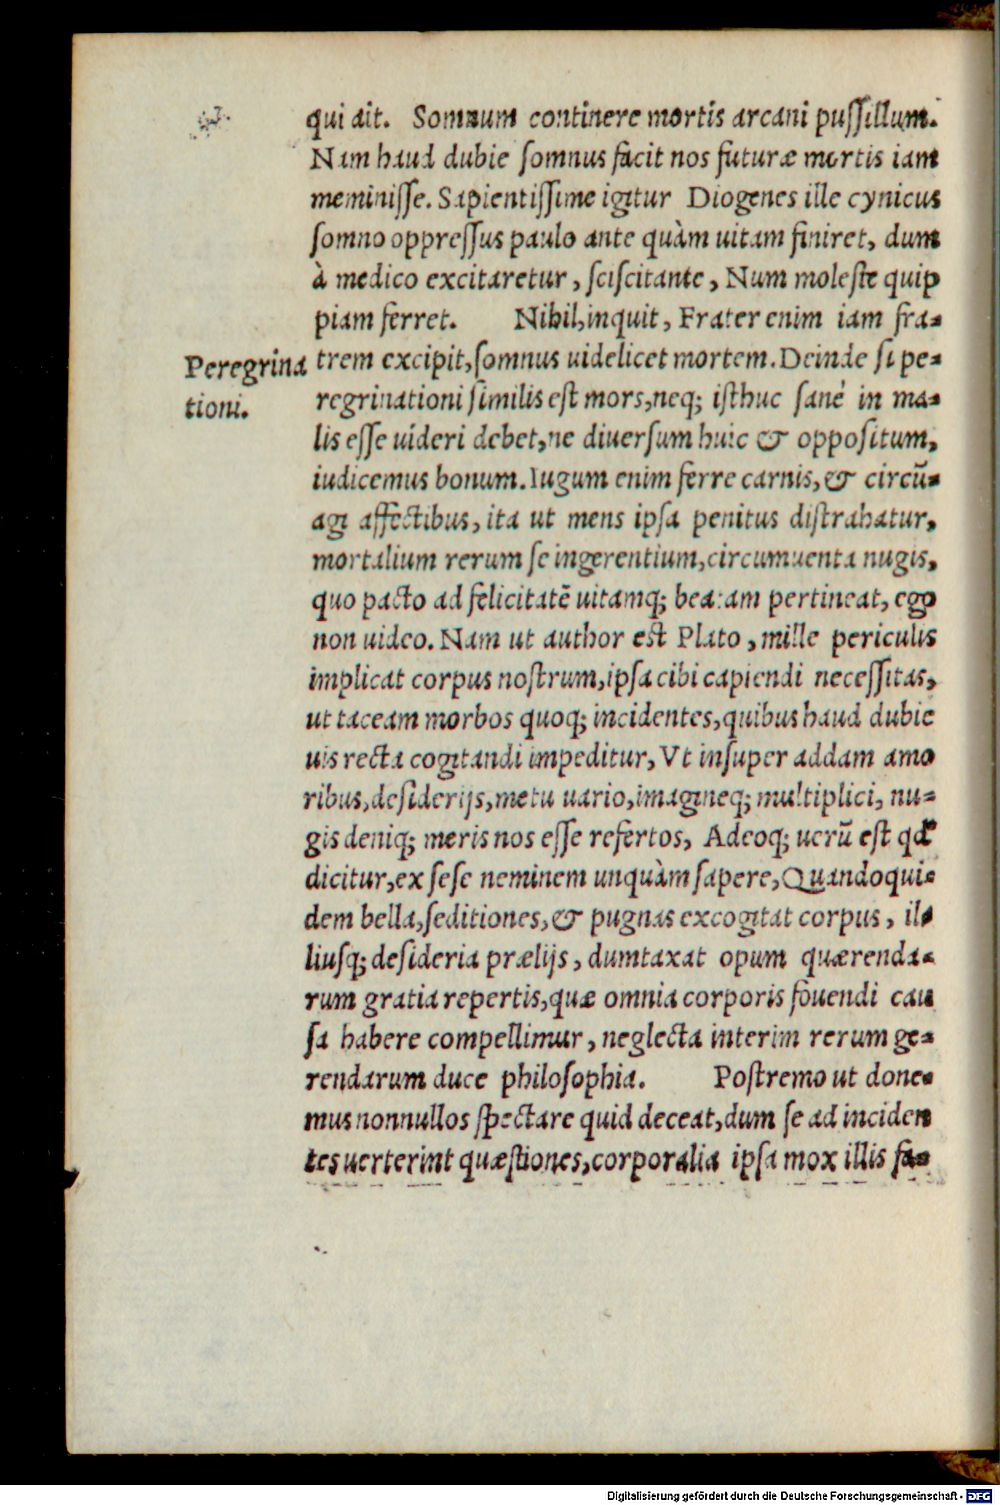 qui ait. Somnum continere mortis arcani pussillum.
Nam haud dubie somnus facit nos futuræ mortis iam
meminisse. Sapientissime igitur Diogenes ille cynicus
somno oppressus paulo ante quàm uitam finiret, dum
à medico excitaretur, sciscitante, Num moleste quip
piam ferret. Nihil, inquit, Frater enim iam fra-
Peregrina
tioni.
trem excipit, somnus uidelicet mortem. Deinde si pe-
regrinationi similis est mors, neq; isthuc sanè in ma-
lis esse uideri debet, ne diuersum huic & oppositum,
iudicemus bonum. Iugum enim ferre carnis, & circũ-
agi affectibus, ita ut mens ipsa penitus distrahatur,
mortalium rerum se ingerentium, circumuenta nugis,
quo pacto ad felicitatẽ uitamq; beatam pertineat, ego
non uideo. Nam ut author est Plato, mille periculis
implicat corpus nostrum, ipsa cibi capiendi necessitas,
ut taceam morbos quoq; incidentes, quibus haud dubie
uis recta cogitandi impeditur, Vt insuper addam amo
ribus, desiderijs, metu uario, imagineq; multiplici, nu-
gis deniq; meris nos esse refertos, Adeoq; uerũ est qđ
dicitur, ex sese neminem unquàm sapere, Quandoqui-
dem bella, seditiones, & pugnas excogitat corpus, il-
liusq; desideria prælijs, dumtaxat opum quærenda-
rum gratia repertis, quæ omnia corporis fouendi cau
sa habere compellimur, neglecta interim rerum ge-
rendarum duce philosophia. Postremo ut done-
mus nonnullos spectare quid deceat, dum se ad inciden
tes uerterint quæstiones, corporalia ipsa mox illis fa-
Digitalisierung gefördert durch die Deutsche Forschungsgemeinschaft - DFG